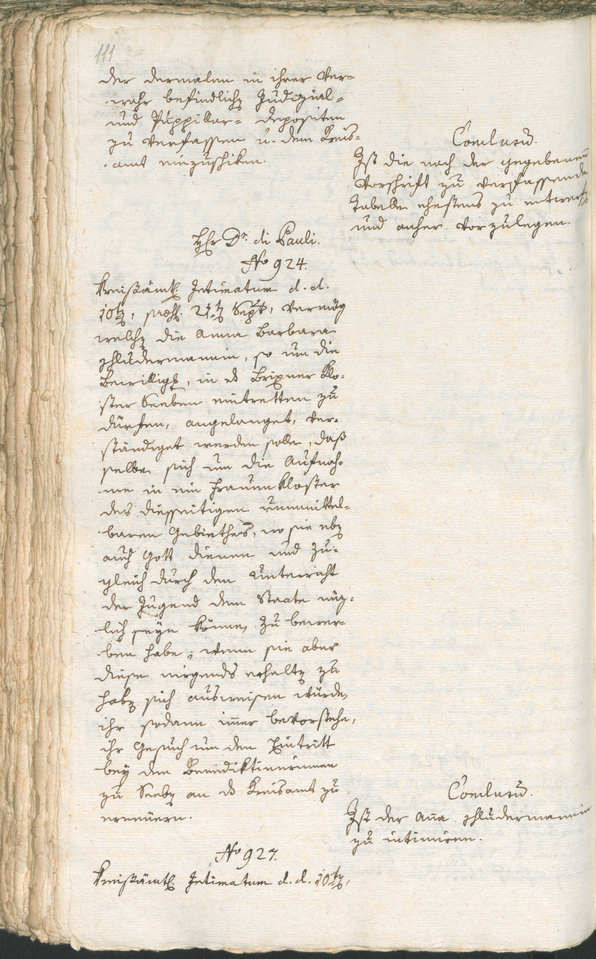 111
der dermalen in ihrer Ver-
wahr befindlichen Judizial-
und Puppillar- Depositen
zu verfassen u. dem Kreis-
amt einzuschiken.
Conclusum.
Ist die nach der gegebenen
Vorschrift zu verfassende
Tabelle ehestens zu entwerfen
und anher vorzulegen.
Hr Dr. di Pauli.
No 924.
Kreisämtl. Intimatum d. d.
10ten, praes. 21ten Sept., vermög
welchen die Anna Barbara
Schludermannin, so um die
Bewilligg, in das Brixner Klo-
ster Seeben eintretten zu
dürfen, angelanget, ver-
ständiget werden solle, daß
selbe sich um die Aufnah-
me in ein Frauenkloster
des diesseitigen unmittel-
baren Gebiethes, wo sie eben
auch Gott dienen und zu-
gleich durch den Unterricht
der Jugend dem Staate nüz-
lich seyn könne, zu bewer-
ben habe; wenn sie aber
diese nirgends erhalten zu
haben sich ausweisen würde,
ihr sodann immer bevorstehe,
ihr Gesuch um den Eintritt
bey den Benediktinerinnen
zu Seeben an das Kreisamt zu
erneuern.
Conclusum.
Ist der Anna Schludermannin
zu intimiren.
No 927.
Kreisämtl. Intimatum d. d. 10ten,